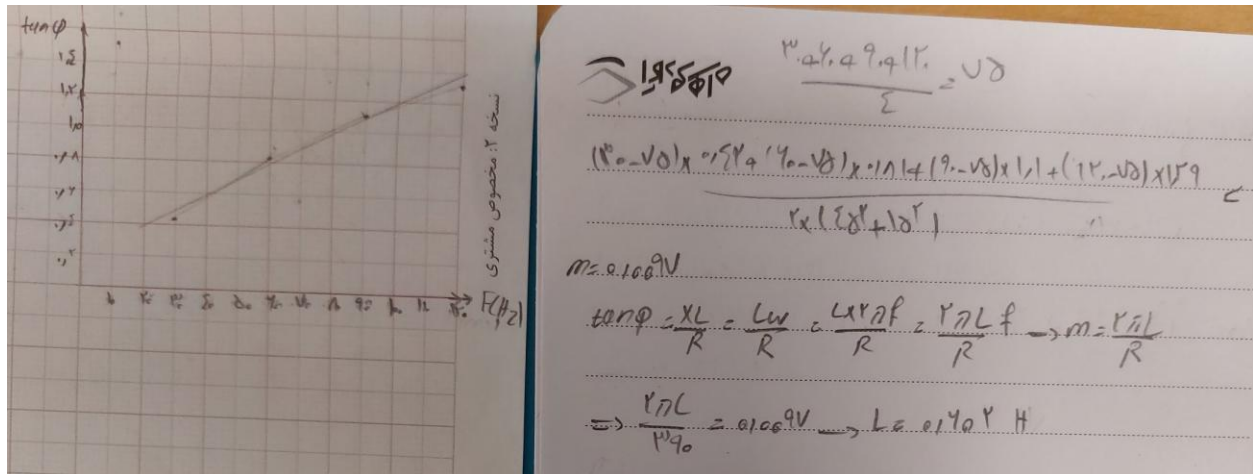 tanφ
۱٫۴
۱٫۲
۱٫۰
۰٫۸
۰٫۶
۰٫۴
۰٫۲
۱۰ ۲۰ ۳۰ ۴۰ ۵۰ ۶۰ ۷۰ ۸۰ ۹۰ ۱۰۰ ۱۱۰ ۱۲۰ F(Hz)
نسخه ۲: مخصوص مشتری
(۳۰+۶۰+۹۰+۱۲۰)/۴ = ۷۵
((۳۰-۷۵)×۰٫۴۲+(۶۰-۷۵)×۰٫۸۱+(۹۰-۷۵)×۱٫۱+(۱۲۰-۷۵)×۱٫۲۹)/(۲×(۴۵²+۱۵²))
m=۰٫۰۰۹۷
tanφ = XL/R = Lω/R = L×۲πf/R = ۲πL/R f → m = ۲πL/R
⇒ ۲πL/۳۹۰ = ۰٫۰۰۹۷ → L = ۰٫۶۰۲ H